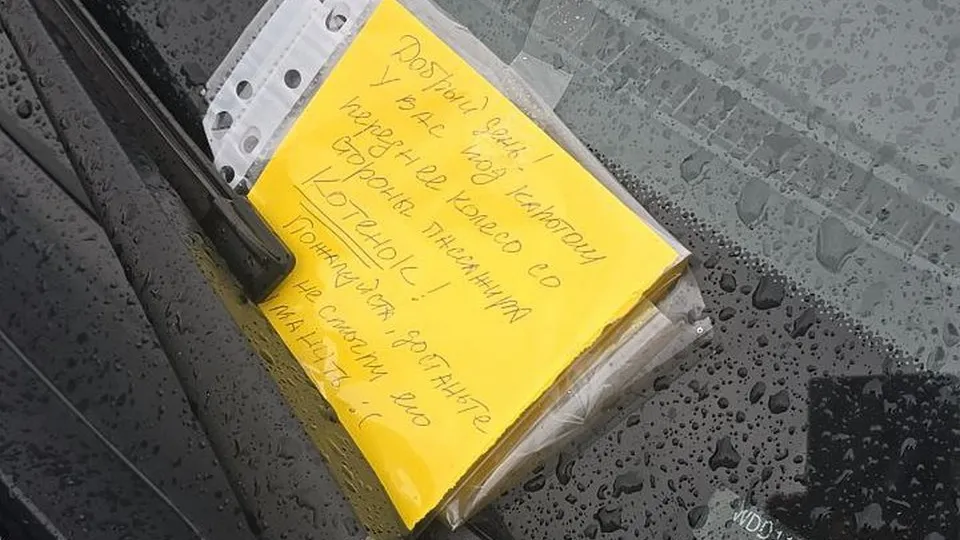 Добрый день!
У вас под капотом
переднее колесо со
стороны пассажира
Котенок!
Пожалуйста, достаньте
не смогли его
манить :(
WDD1